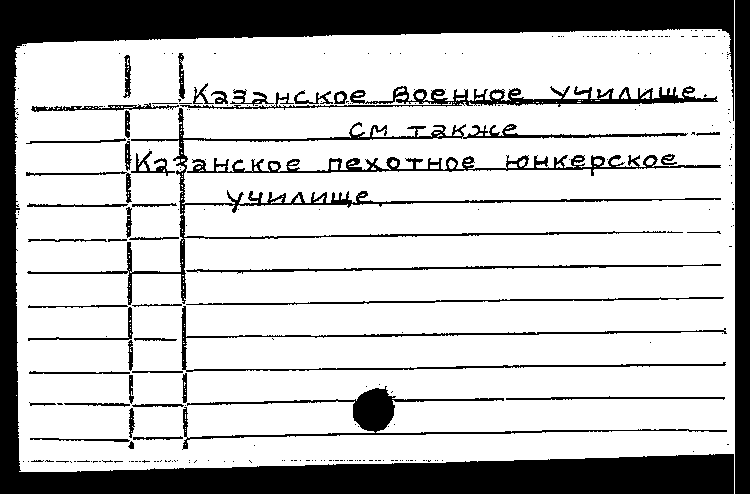 Казанское военное училище.
см также
Казанское пехотное юнкерское
училище.